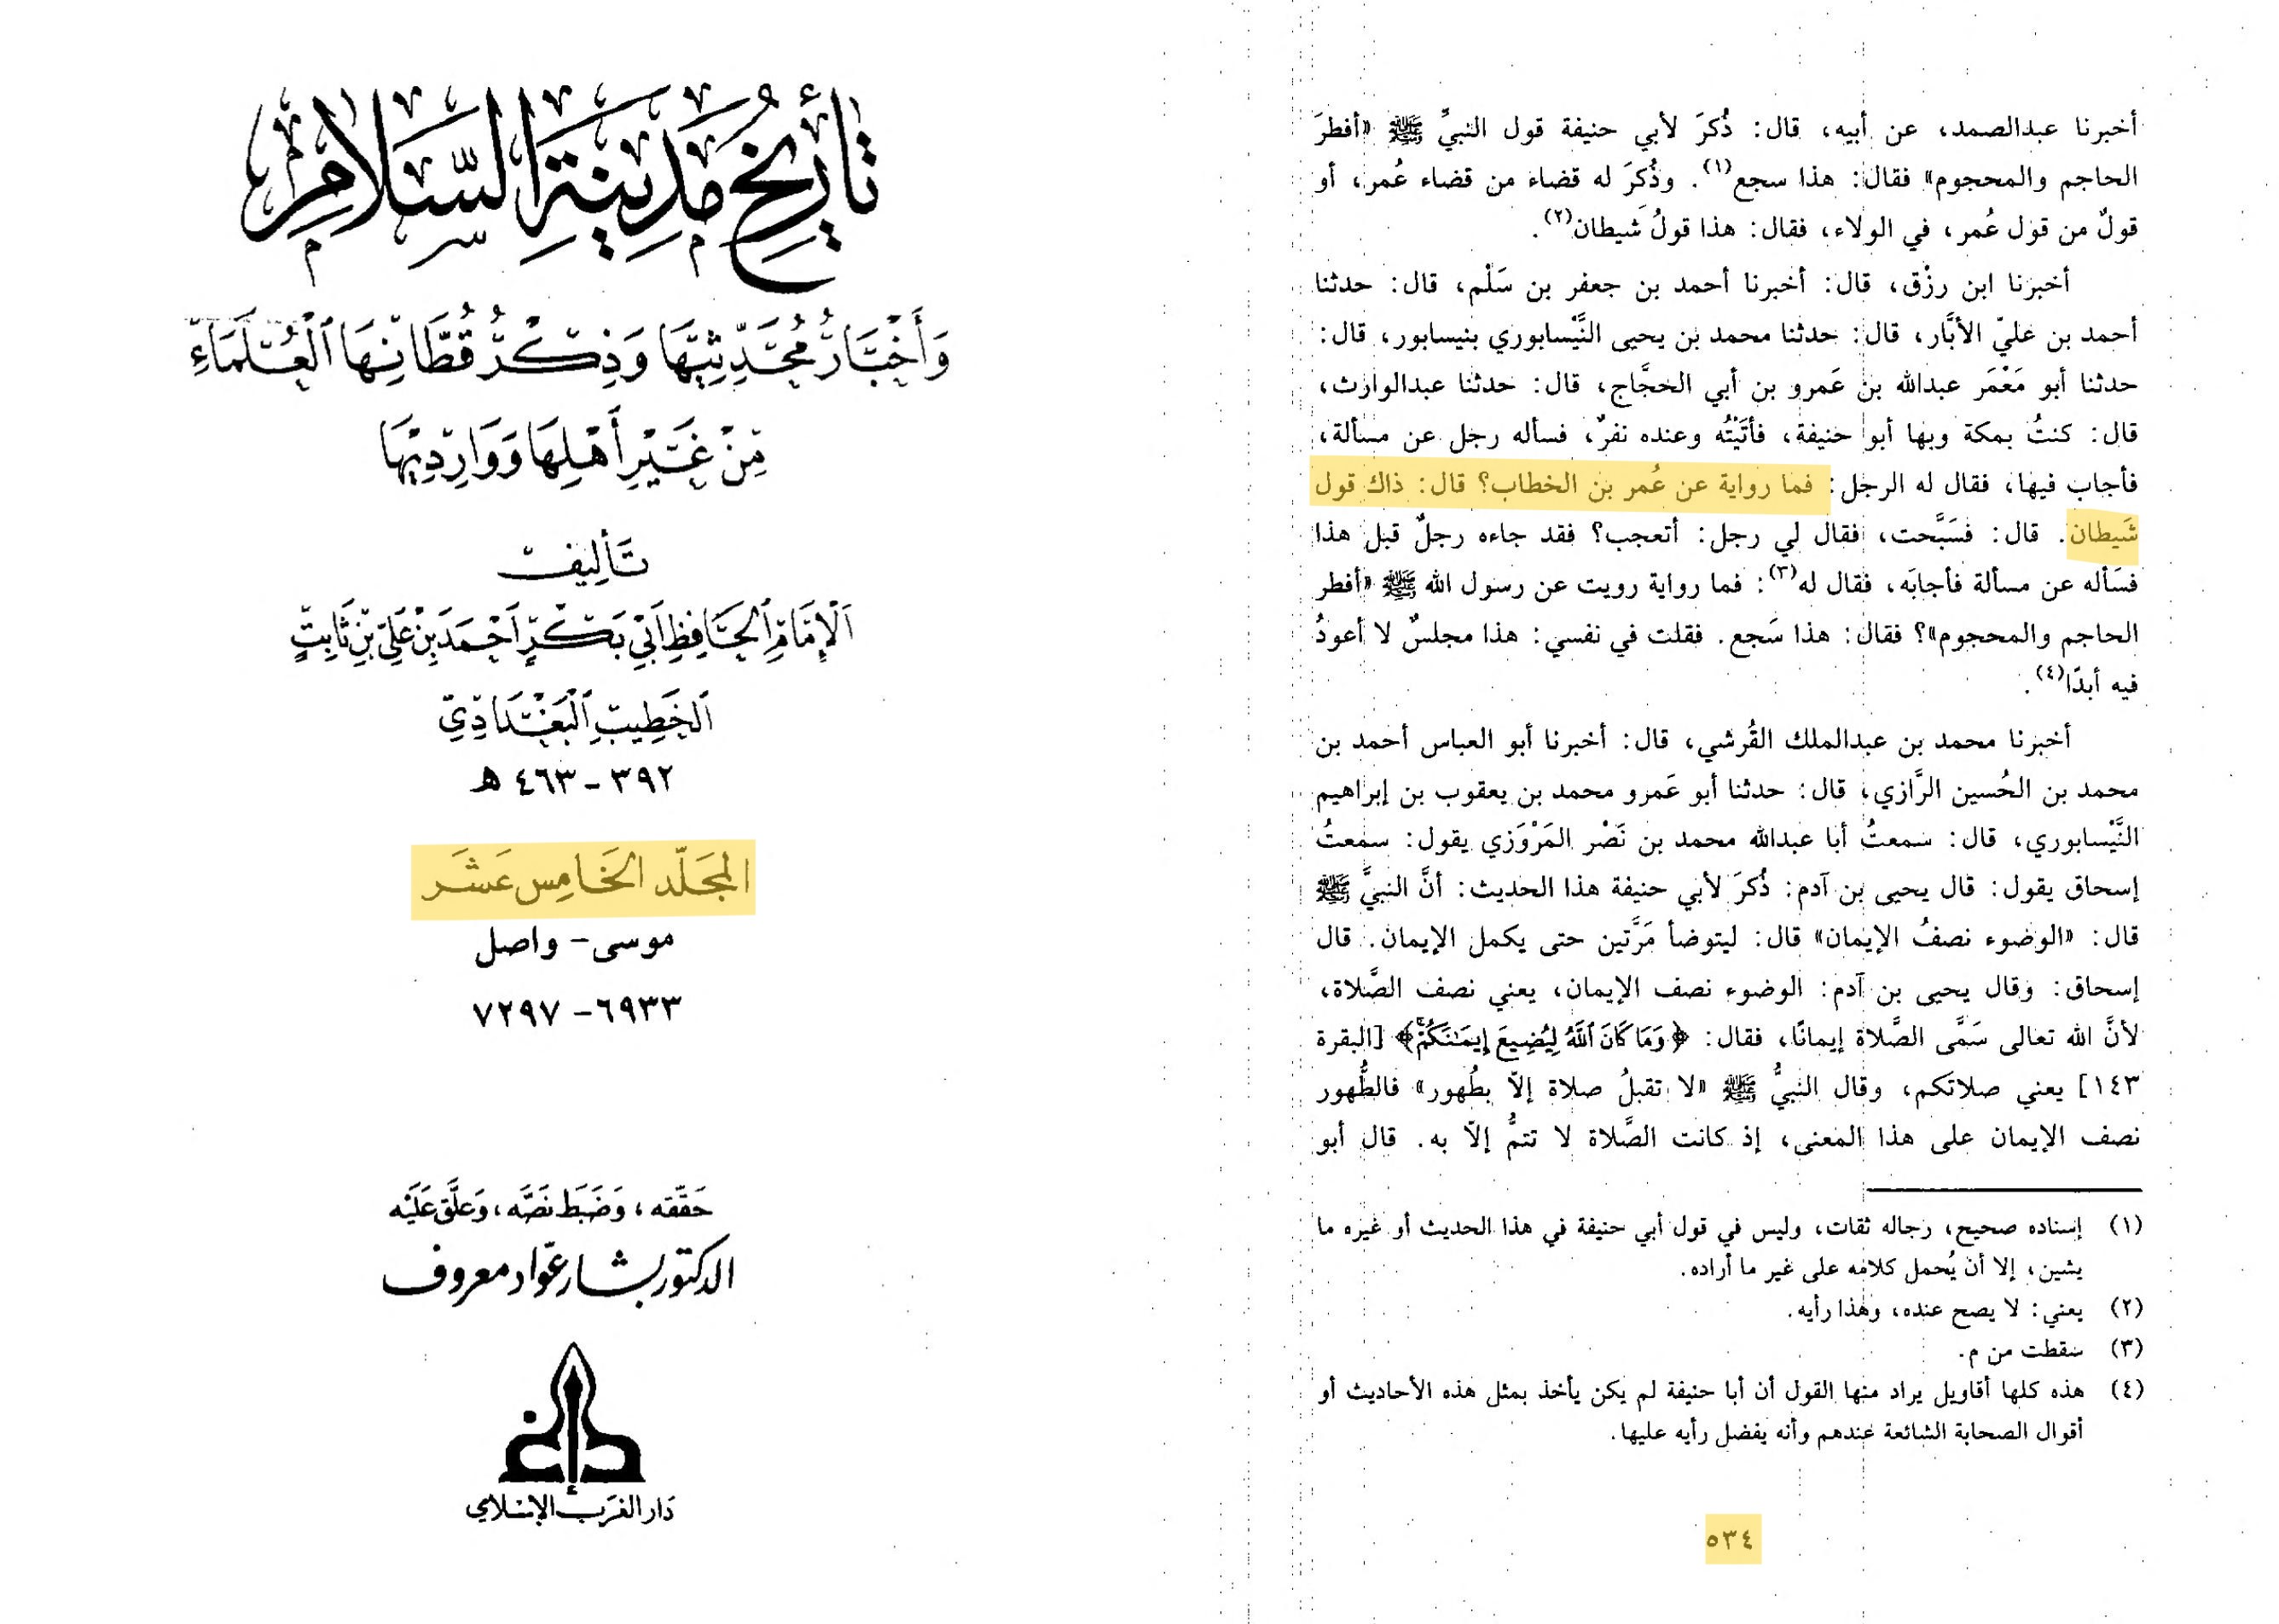 تأريخ مدينة السلام
وَأَخْبَارُ مُحَدِّثِيهَا وَذِكْرُ قُطَّانِهَا ٱلْعُلَمَاءِ
مِنْ غَيْرِ أَهْلِهَا وَوَارِدِيهَا
تأليف
الإمام الحافظ أبي بكر أحمد بن علي بن ثابت
الخطيب البغدادي
٣٩٢ - ٤٦٣ هـ
المجلد الخامس عشر
موسى - واصل
٦٩٣٣ - ٧٢٩٧
حققه، وضبط نصه، وعلق عليه
الدكتور بشار عواد معروف
دار الغرب الإسلامي
أخبرنا عبدالصمد، عن أبيه، قال: ذُكرَ لأبي حنيفة قول النبيِّ ﷺ «أفطرَ
الحاجم والمحجوم» فقال: هذا سجع(١). وذُكِرَ له قضاء من قضاء عُمر، أو
قولٌ من قول عُمر، في الولاء، فقال: هذا قولُ شيطان(٢).
أخبرنا ابن رزْق، قال: أخبرنا أحمد بن جعفر بن سَلْم، قال: حدثنا
أحمد بن عليّ الأبَّار، قال: حدثنا محمد بن يحيى النَّيْسابوري بنيسابور، قال:
حدثنا أبو مَعْمَر عبدالله بن عَمرو بن أبي الحجَّاج، قال: حدثنا عبدالوارث،
قال: كنتُ بمكة وبها أبو حنيفة، فأتَيْتُه وعنده نفرٌ، فسأله رجل عن مسألة،
فأجاب فيها، فقال له الرجل: فما رواية عن عُمر بن الخطاب؟ قال: ذاك قول
شَيطان. قال: فسَبَّحت، فقال لي رجل: أتعجب؟ فقد جاءه رجلٌ قبل هذا
فسَأله عن مسألة فأجابَه، فقال له(٣): فما رواية رويت عن رسول الله ﷺ «أفطر
الحاجم والمحجوم»؟ فقال: هذا سَجع. فقلت في نفسي: هذا مجلسٌ لا أعودُ
فيه أبدًا(٤).
أخبرنا محمد بن عبدالملك القُرشي، قال: أخبرنا أبو العباس أحمد بن
محمد بن الحُسين الرَّازي، قال: حدثنا أبو عَمرو محمد بن يعقوب بن إبراهيم
النَّيْسابوري، قال: سمعتُ أبا عبدالله محمد بن نَصْر المَرْوَزي يقول: سمعتُ
إسحاق يقول: قال يحيى بن آدم: ذُكرَ لأبي حنيفة هذا الحديث: أنَّ النبيَّ ﷺ
قال: «الوضوء نصفُ الإيمان» قال: ليتوضأ مَرَّتين حتى يكمل الإيمان. قال
إسحاق: وقال يحيى بن آدم: الوضوء نصف الإيمان، يعني نصف الصَّلاة،
لأنَّ الله تعالى سَمَّى الصَّلاة إيمانًا، فقال: ﴿وَمَا كَانَ ٱللَّهُ لِيُضِيعَ إِيمَٰنَكُمْ﴾ [البقرة
١٤٣] يعني صلاتكم، وقال النبيُّ ﷺ «لا تقبلُ صلاة إلاّ بطُهور» فالطُّهور
نصف الإيمان على هذا المعنى، إذ كانت الصَّلاة لا تتمُّ إلاّ به. قال أبو
(١) إسناده صحيح، رجاله ثقات، وليس في قول أبي حنيفة في هذا الحديث أو غيره ما
يشين، إلا أن يُحمل كلامه على غير ما أراده.
(٢) يعني: لا يصح عنده، وهذا رأيه.
(٣) سقطت من م.
(٤) هذه كلها أقاويل يراد منها القول أن أبا حنيفة لم يكن يأخذ بمثل هذه الأحاديث أو
أقوال الصحابة الشائعة عندهم وأنه يفضل رأيه عليها.
٥٣٤